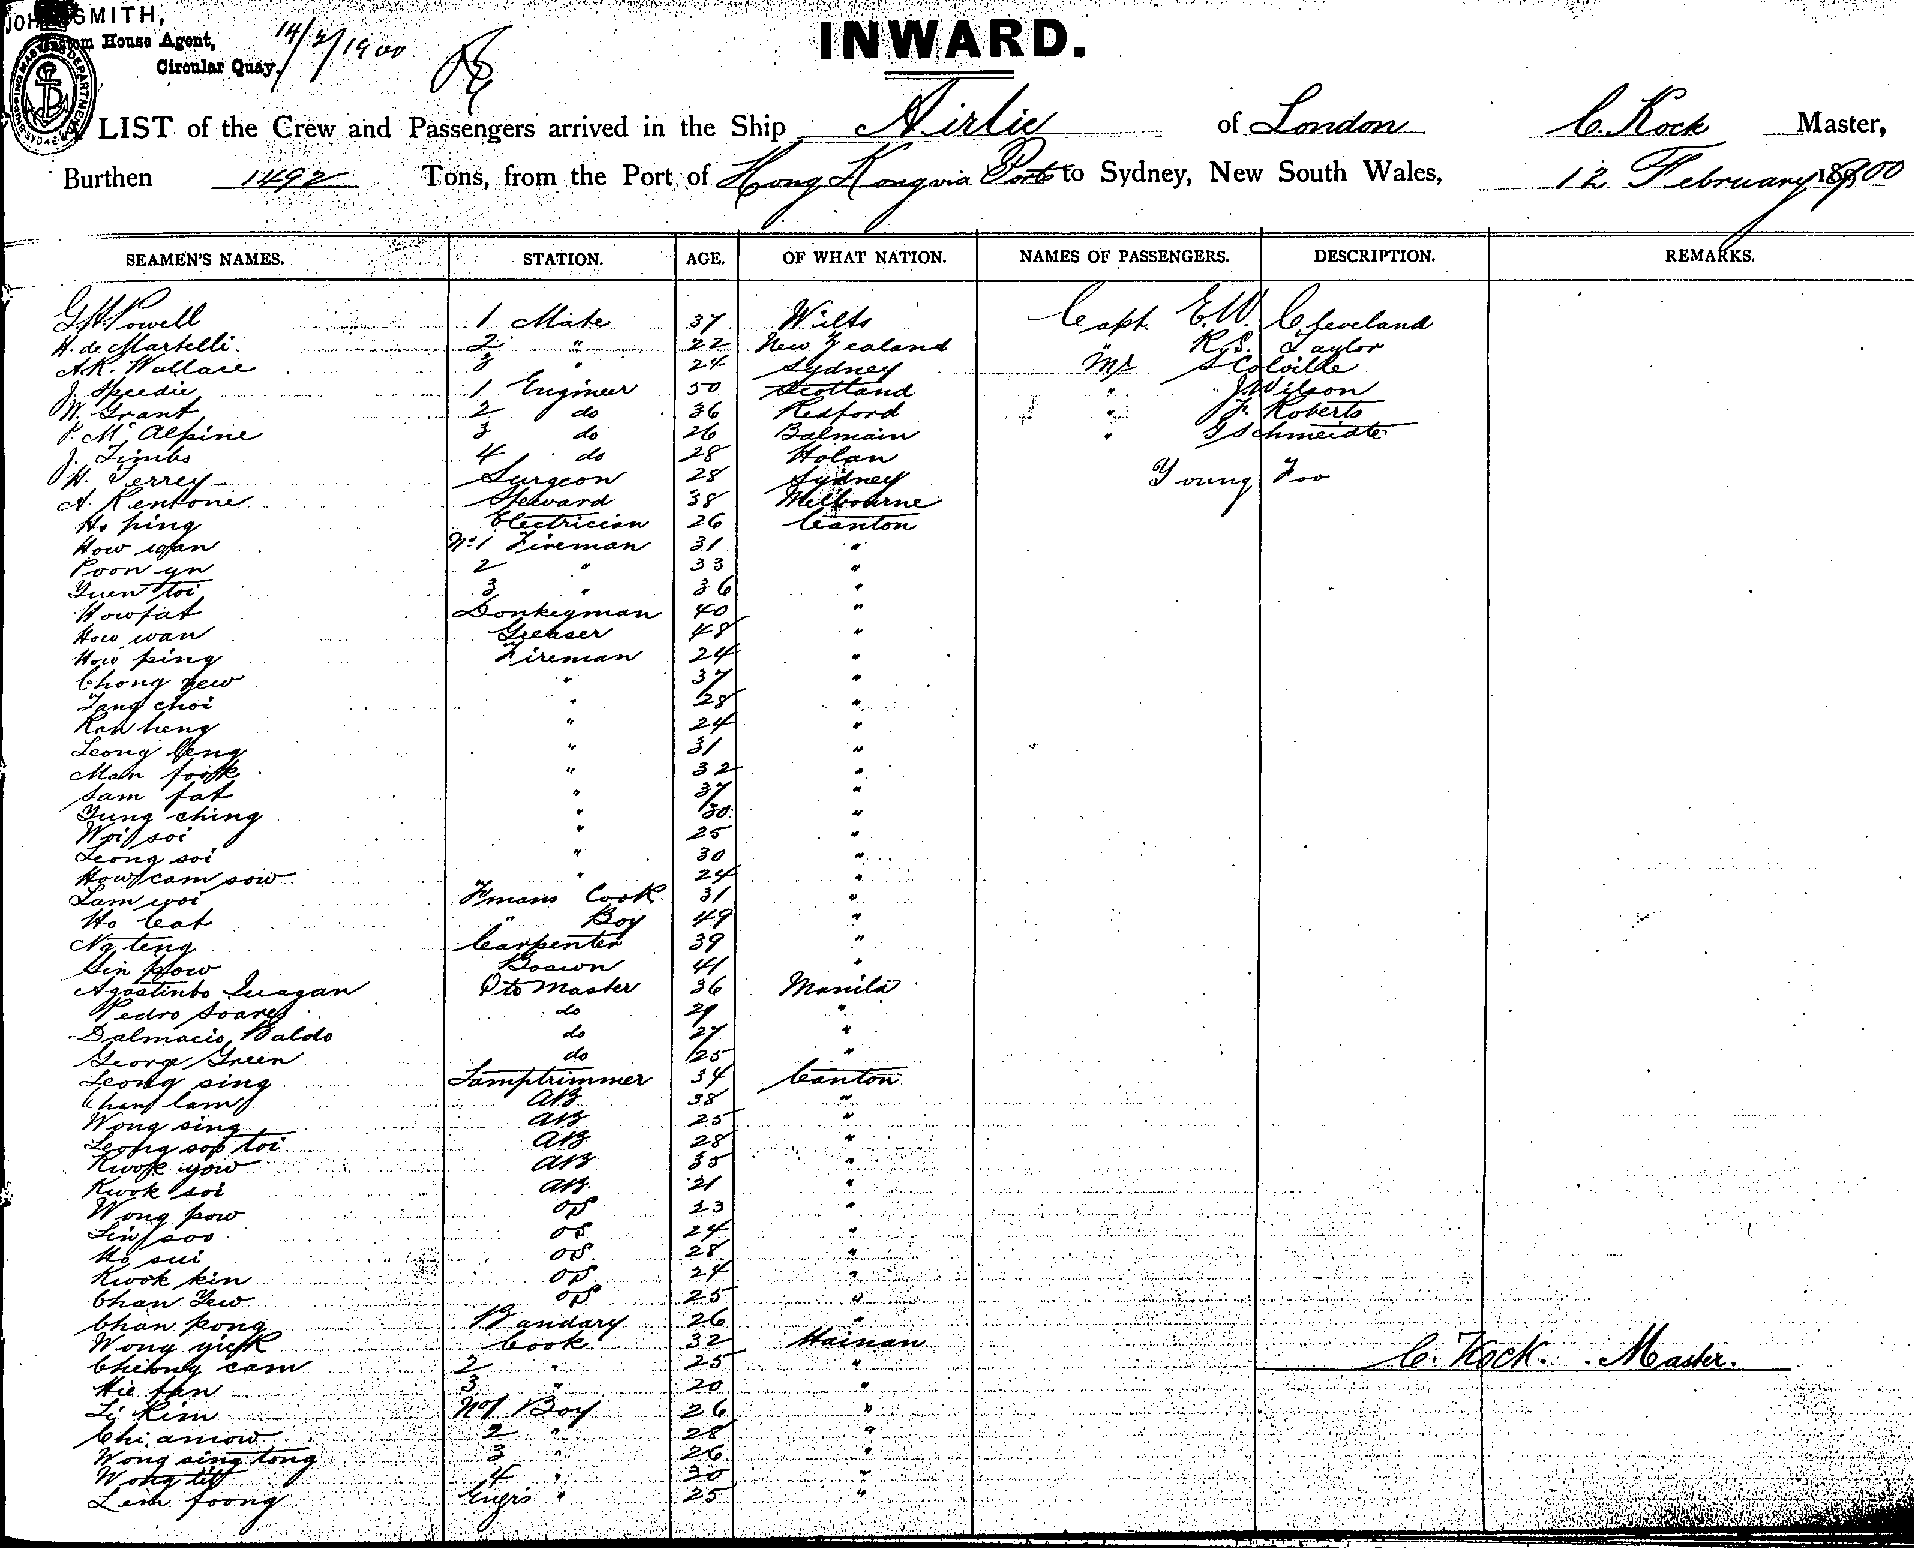 JOHN SMITH,
Custom House Agent,
Circular Quay.
14/2/1900
INWARD.
LIST of the Crew and Passengers arrived in the Ship Airlie of London C. Kock Master,
Burthen 1492 Tons, from the Port of Hong Kong via Ports to Sydney, New South Wales, 12 February 1900
SEAMEN'S NAMES. STATION. AGE. OF WHAT NATION. NAMES OF PASSENGERS. DESCRIPTION. REMARKS.
G H Powell 1 Mate 37 Wilts Capt. E. W. Cleveland
H. de Martelli 2 " 22 New Zealand " R. S. Taylor
A.K. Wallace 3 " 24 Sydney Mr S Colville
J. Speedie 1 Engineer 50 Scotland " J. Wilson
W. Grant 2 do 36 Redford " F. Roberts
P. McAlpine 3 do 26 Balmain " G Schmeidte
J. Timbs 4 do 28 Holan
H. Terrey Surgeon 28 Sydney Young Foo
A. Kentone Steward 38 Melbourne
Ho ping Electrician 26 Canton
How wan No 1 Fireman 31 "
Poon yn 2 " 33 "
Yuen toi 3 " 36 "
How fat Donkeyman 40 "
How wan Greaser 48 "
How ping Fireman 24 "
Chong yew " 37 "
Tang choi " 28 "
Kan heng " 24 "
Leong leng " 31 "
Man fook " 32 "
Sam fat " 37 "
Yung ching " 30 "
Woi soi " 25 "
Leong soi " 30 "
How cam sow " 24 "
Lam woi Fmans Cook 31 "
Ho Cat " Boy 49 "
Ng teng Carpenter 39 "
Sin pow Boswn 41 "
Agostinbo Quagan Qto Master 36 Manila
Pedro Soares do 29 "
Dalmacio Baldo do 27 "
George Green do 25 "
Leong sing Lamptrimmer 34 Canton
Chan lam AB 38 "
Wong sing AB 25 "
Leong sop toi AB 28 "
Kwok yow AB 35 "
Kwok soi AB 21 "
Wong pow OS 23 "
Lin soo OS 24 "
Ho sui OS 28 "
Kwok kin OS 24 "
Chan Yew OS 25 "
Chan kong Bandary 26 "
Wong yick Cook 32 Hainan
Cheong cam 2 " 25 " C. Kock. Master.
Hie fan 3 " 20 "
Li Kim No 1 Boy 26 "
Chi amow 2 " 28 "
Wong sing tong 3 " 26 "
Wong tip 4 " 30 "
Lem foong Engrs " 25 "